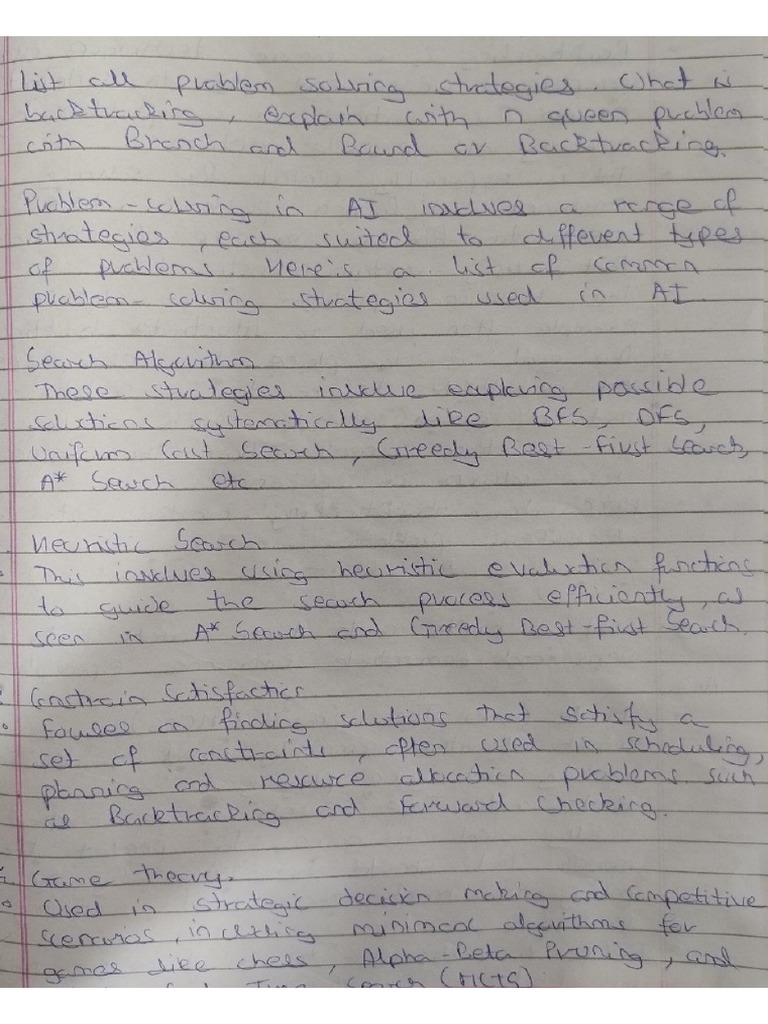 List all problem solving strategies. What is
backtracking, explain with n queen problem
with Branch and Bound or Backtracking.
Problem-solving in AI involves a range of
strategies, each suited to different types
of problems. Here's a list of common
problem-solving strategies used in AI
Search Algorithm
These strategies involve exploring possible
solutions systematically like BFS, DFS,
Uniform Cost Search, Greedy Best-First Search,
A* Search etc
Heuristic Search
This involves using heuristic evaluation functions
to guide the search process efficiently, as
seen in A* Search and Greedy Best-first Search.
Constrain Satisfaction
Focuses on finding solutions that satisfy a
set of constraints, often used in scheduling,
planning and resource allocation problems such
as Backtracking and Forward Checking.
Game Theory.
Used in strategic decision making and competitive
scenarios, including minimax algorithms for
games like chess, Alpha-Beta Pruning, and
Search (MCTS)